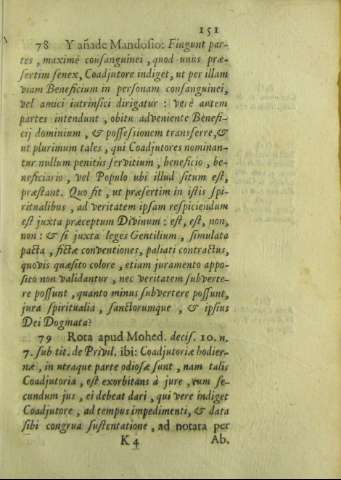 151
78 Y añade Mandosio: Fingunt par-
tes, maximè consanguinei, quod unus præ-
sertim senex, Coadjutore indiget, ut per illam
viam Beneficium in personam consanguinei,
vel amici intrinsici dirigatur: verè autem
partes intendunt, obitu adveniente Benefi-
cij dominium, & possessionem transferre, &
ut plurimum tales, qui Coadjutores nominan-
tur nullum penitùs servitium, beneficio, be-
neficiario, vel Populo ubi illud situm est,
præstant. Quo fit, ut præsertim in istis spi-
ritualibus, ad veritatem ipsam respiciendum
est juxta præceptum Divinum: est, est, non,
non: & si juxta leges Gentilium, simulata
pacta, fictæ conventiones, paliati contractus,
quovis quæsito colore, etiam juramento appo-
sito non validantur, nec veritatem subverte-
re possunt, quanto minus subvertere possunt,
jura spiritualia, sanctorumque, & ipsius
Dei Dogmata?
79 Rota apud Mohed. decis. 10. n.
7. sub tit. de Privil. ibi: Coadjutoriæ hodier-
næ, in utraque parte odiosæ sunt, nam talis
Coadjutoria, est exorbitans à jure, cum se-
cundum jus, ei debeat dari, qui verè indiget
Coadjutore, ad tempus impedimenti, & data
sibi congrua sustentatione, ad notata per
K 4 Ab.